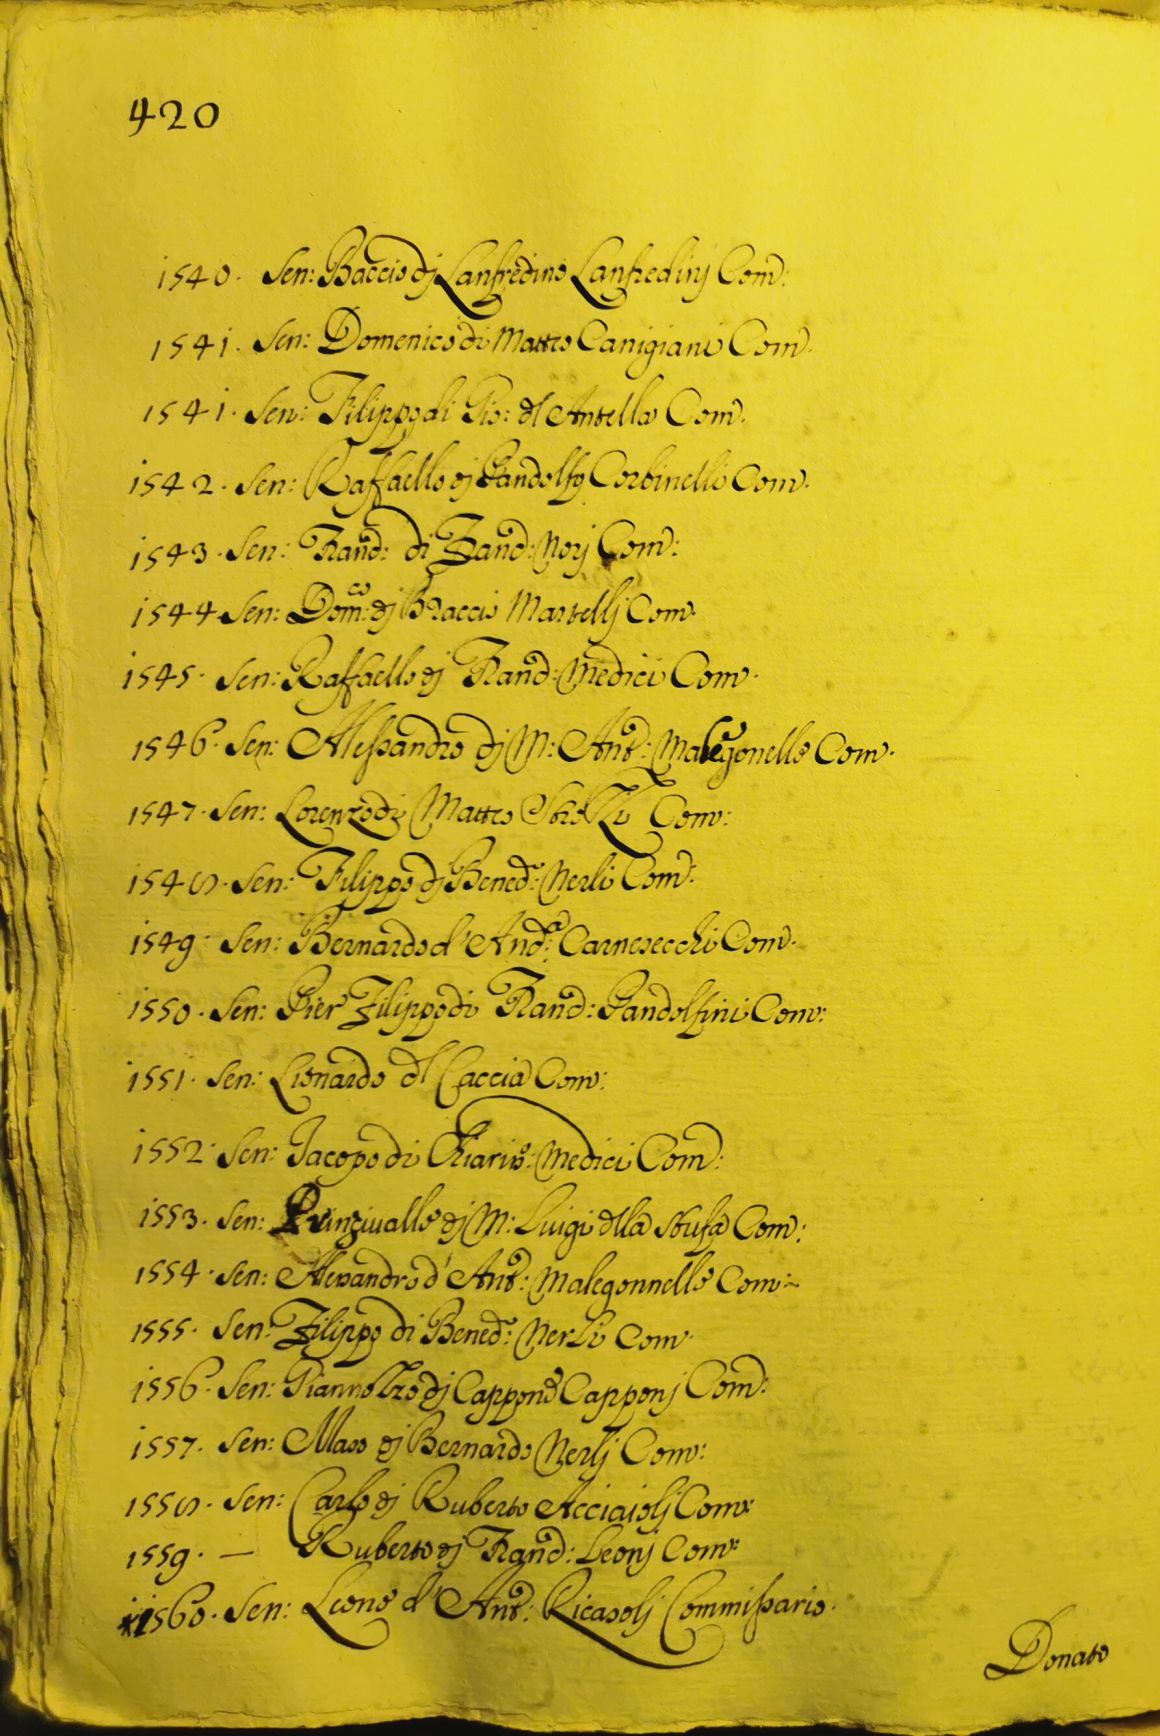 420
1540. Sen: Baccio dj Lanfredino Lanfredinj Com:
1541. Sen: Domenico di Matteo Canigiani Com.
1541. Sen: Filippo di Gio: dl Antella Com.
1542. Sen: Raffaello dj Pandolfo Corbinelli Com.
1543. Sen: Franc: di Franc: Norj Com:
1544 Sen: Dom:co dj Braccio Martellj Com.
1545. Sen: Raffaello dj Franc: Medici Com.
1546. Sen: Alessandro dj M: Ant: Malegonelle Com.
1547. Sen: Lorenzo di Matteo Strozzi Com:
1548. Sen: Filippo dj Bened: Nerli Com:
1549. Sen: Bernardo d'And:a Carnesecchi Com.
1550. Sen: Pier Filippo di Franc: Pandolfini Com:
1551. Sen: Lionardo dl Caccia Com:
1552. Sen: Jacopo di Chiariss: Medici Com:
1553. Sen: Prinzivalle dj M: Luigi dlla Stufa Com:
1554. Sen: Alessandro d'Ant: Malegonnelle Com:
1555. Sen: Filippo di Bened: Nerli Com.
1556. Sen: Giannozzo dj Cappone Capponj Com:
1557. Sen: Maso dj Bernardo Nerlj Com:
1558. Sen: Carlo dj Ruberto Acciaiolj Com:
1559. — Ruberto dj Franc: Leonj Com:
1560. Sen: Leone d'Ant: Ricasolj Commissario.
Donato